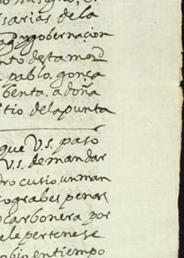 sarias de la
y gobernacion
nto desta man
pablo gonça
benta a doña
itio de la punta
que V.S. paso
V.S. demandar
dro cusio, un man
cograbes penas
carbonera por
ele pertenese
bio en tiempo